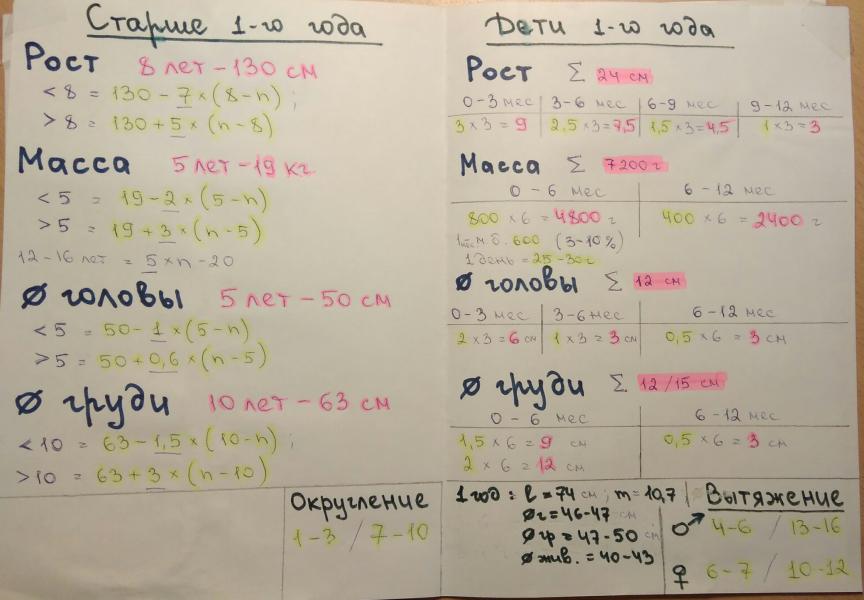 Старше 1-го года
Рост 8 лет - 130 см
< 8 = 130 - 7 × (8 - n) ;
> 8 = 130 + 5 × (n - 8)
Масса 5 лет - 19 кг
< 5 = 19 - 2 × (5 - n)
> 5 = 19 + 3 × (n - 5)
12 - 16 лет = 5 × n - 20
Ø головы 5 лет - 50 см
< 5 = 50 - 1 × (5 - n)
> 5 = 50 + 0,6 × (n - 5)
Ø груди 10 лет - 63 см
< 10 = 63 - 1,5 × (10 - n) ;
> 10 = 63 + 3 × (n - 10)
Округление
1 - 3 / 7 - 10
Дети 1-го года
Рост Σ 24 см
0 - 3 мес 3 - 6 мес 6 - 9 мес 9 - 12 мес
3 × 3 = 9 2,5 × 3 = 7,5 1,5 × 3 = 4,5 1 × 3 = 3
Масса Σ 7200 г
0 - 6 мес 6 - 12 мес
800 × 6 = 4800 г 400 × 6 = 2400 г
м.б. 600 (3 - 10%)
1 день = 25 - 30 г
Ø головы Σ 12 см
0 - 3 мес 3 - 6 мес 6 - 12 мес
2 × 3 = 6 см 1 × 3 = 3 см 0,5 × 6 = 3 см
Ø груди Σ 12/15 см
0 - 6 мес 6 - 12 мес
1,5 × 6 = 9 см 0,5 × 6 = 3 см
2 × 6 = 12 см
1 год : l = 74 см ; m = 10,7
Øг = 46 - 47 см
Øгр = 47 - 50 см
Øжив. = 40 - 43
Вытяжение
♂ 4 - 6 / 13 - 16
♀ 6 - 7 / 10 - 12